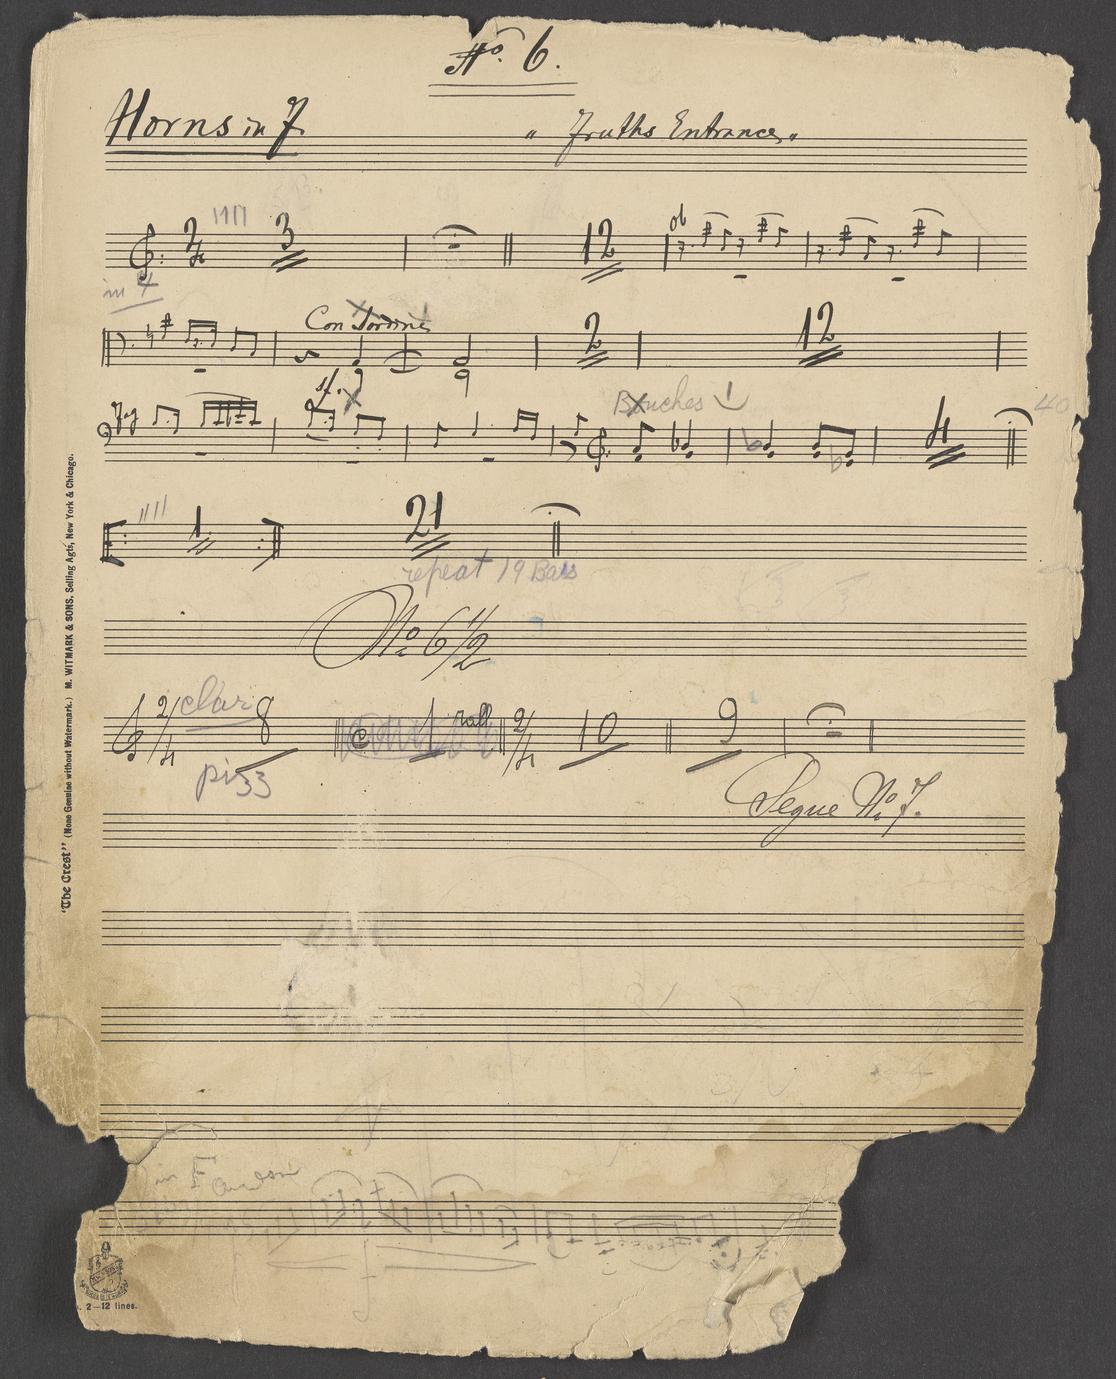 No. 6.
Horns in F
"Truths Entrance"
3 12 ob
in 4
Con Sordini 2 12
sf.
Fag Bouches 4 40
1 21
repeat 19 Bars
No. 6 1/2
2/4 clar 8 1 rall 2/4 10 9
pizz
Segue No. 7.
in F
"The Crest" (None Genuine without Watermark.) M. WITMARK & SONS, Selling Agts, New York & Chicago.
2—12 lines.